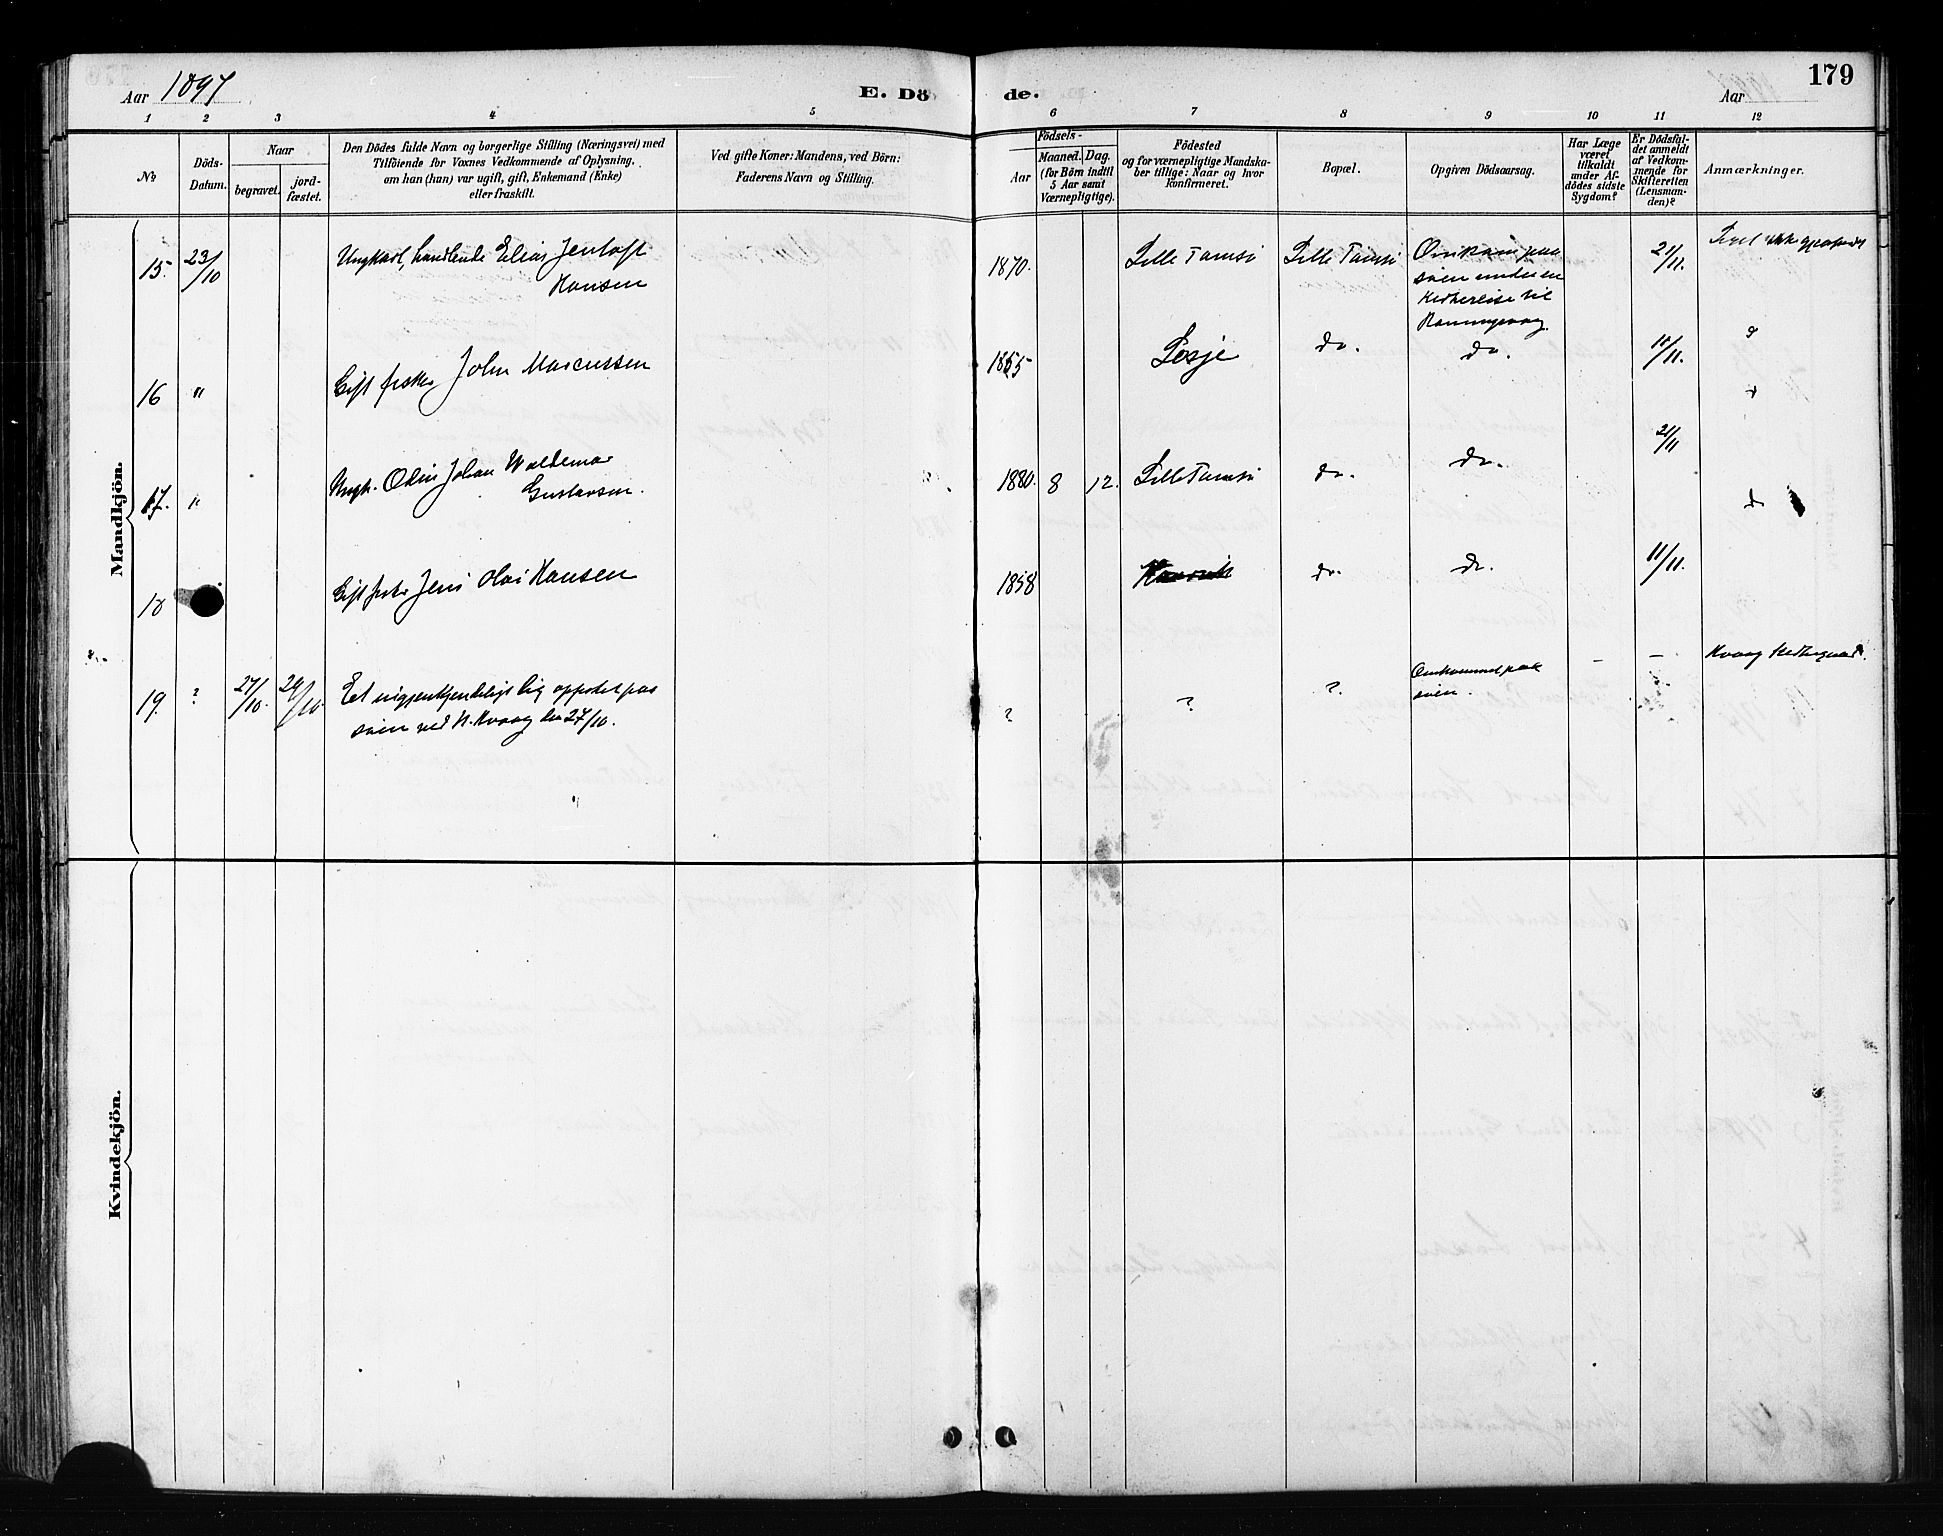 Aar 1897
E. Döde.
Aar
179
1 2 3 4 5 6 7 8 9 10 11 12
No
Döds-
Datum.
Naar
begravet.
jord-
fæstet.
Den Dödes fulde Navn og borgerlige Stilling (Næringsvei) med
Tilföiende for Voxnes Vedkommende af Oplysning,
om han (hun) var ugift, gift, Enkemand (Enke)
eller fraskilt.
Ved gifte Koner: Mandens, ved Börn:
Faderens Navn og Stilling.
Födsels-
Aar
Maaned. Dag.
(for Börn indtil
5 Aar samt
Værnepligtige).
Födested
og for værnepligtige Mandska-
ber tillige: Naar og hvor
konfirmeret.
Bopæl.
Opgiven Dödsaarsag.
Har Læge
været
tilkaldt
under Af-
dödes sidste
Sygdom?
Er Dödsfal-
det anmeldt
af Vedkom-
mende for
Skifteretten
(Lensman-
den)?
Anmærkninger.
Mandkjön.
15. 23/10 Ungkarl, handlende Elias Jentoft
Hansen
1870. Lille Tamsö Lille Tamsö Omkom paa
söen under en
Kirkereise til
Honningsvaag.
21/11. ikke
16 " Gift fisker John Marcussen
1855 Losje do. do. 11/11.
17. " Ungk. Odin Johan Waldemar
Gustavsen.
1880. 8 12. Lille Tamsö do. do. 21/11 do
18 Gift fisker Jens Olai Hansen
1858 do. do. 11/11.
19. ? 27/10. 29/10 Et uigjenkjendeligt Lig opfisket paa
söen ved N. Kvaag den 27/10.
? ? ? Omkommet paa
söen.
– – Kvaag Kirkegaard.
Kvindekjön.